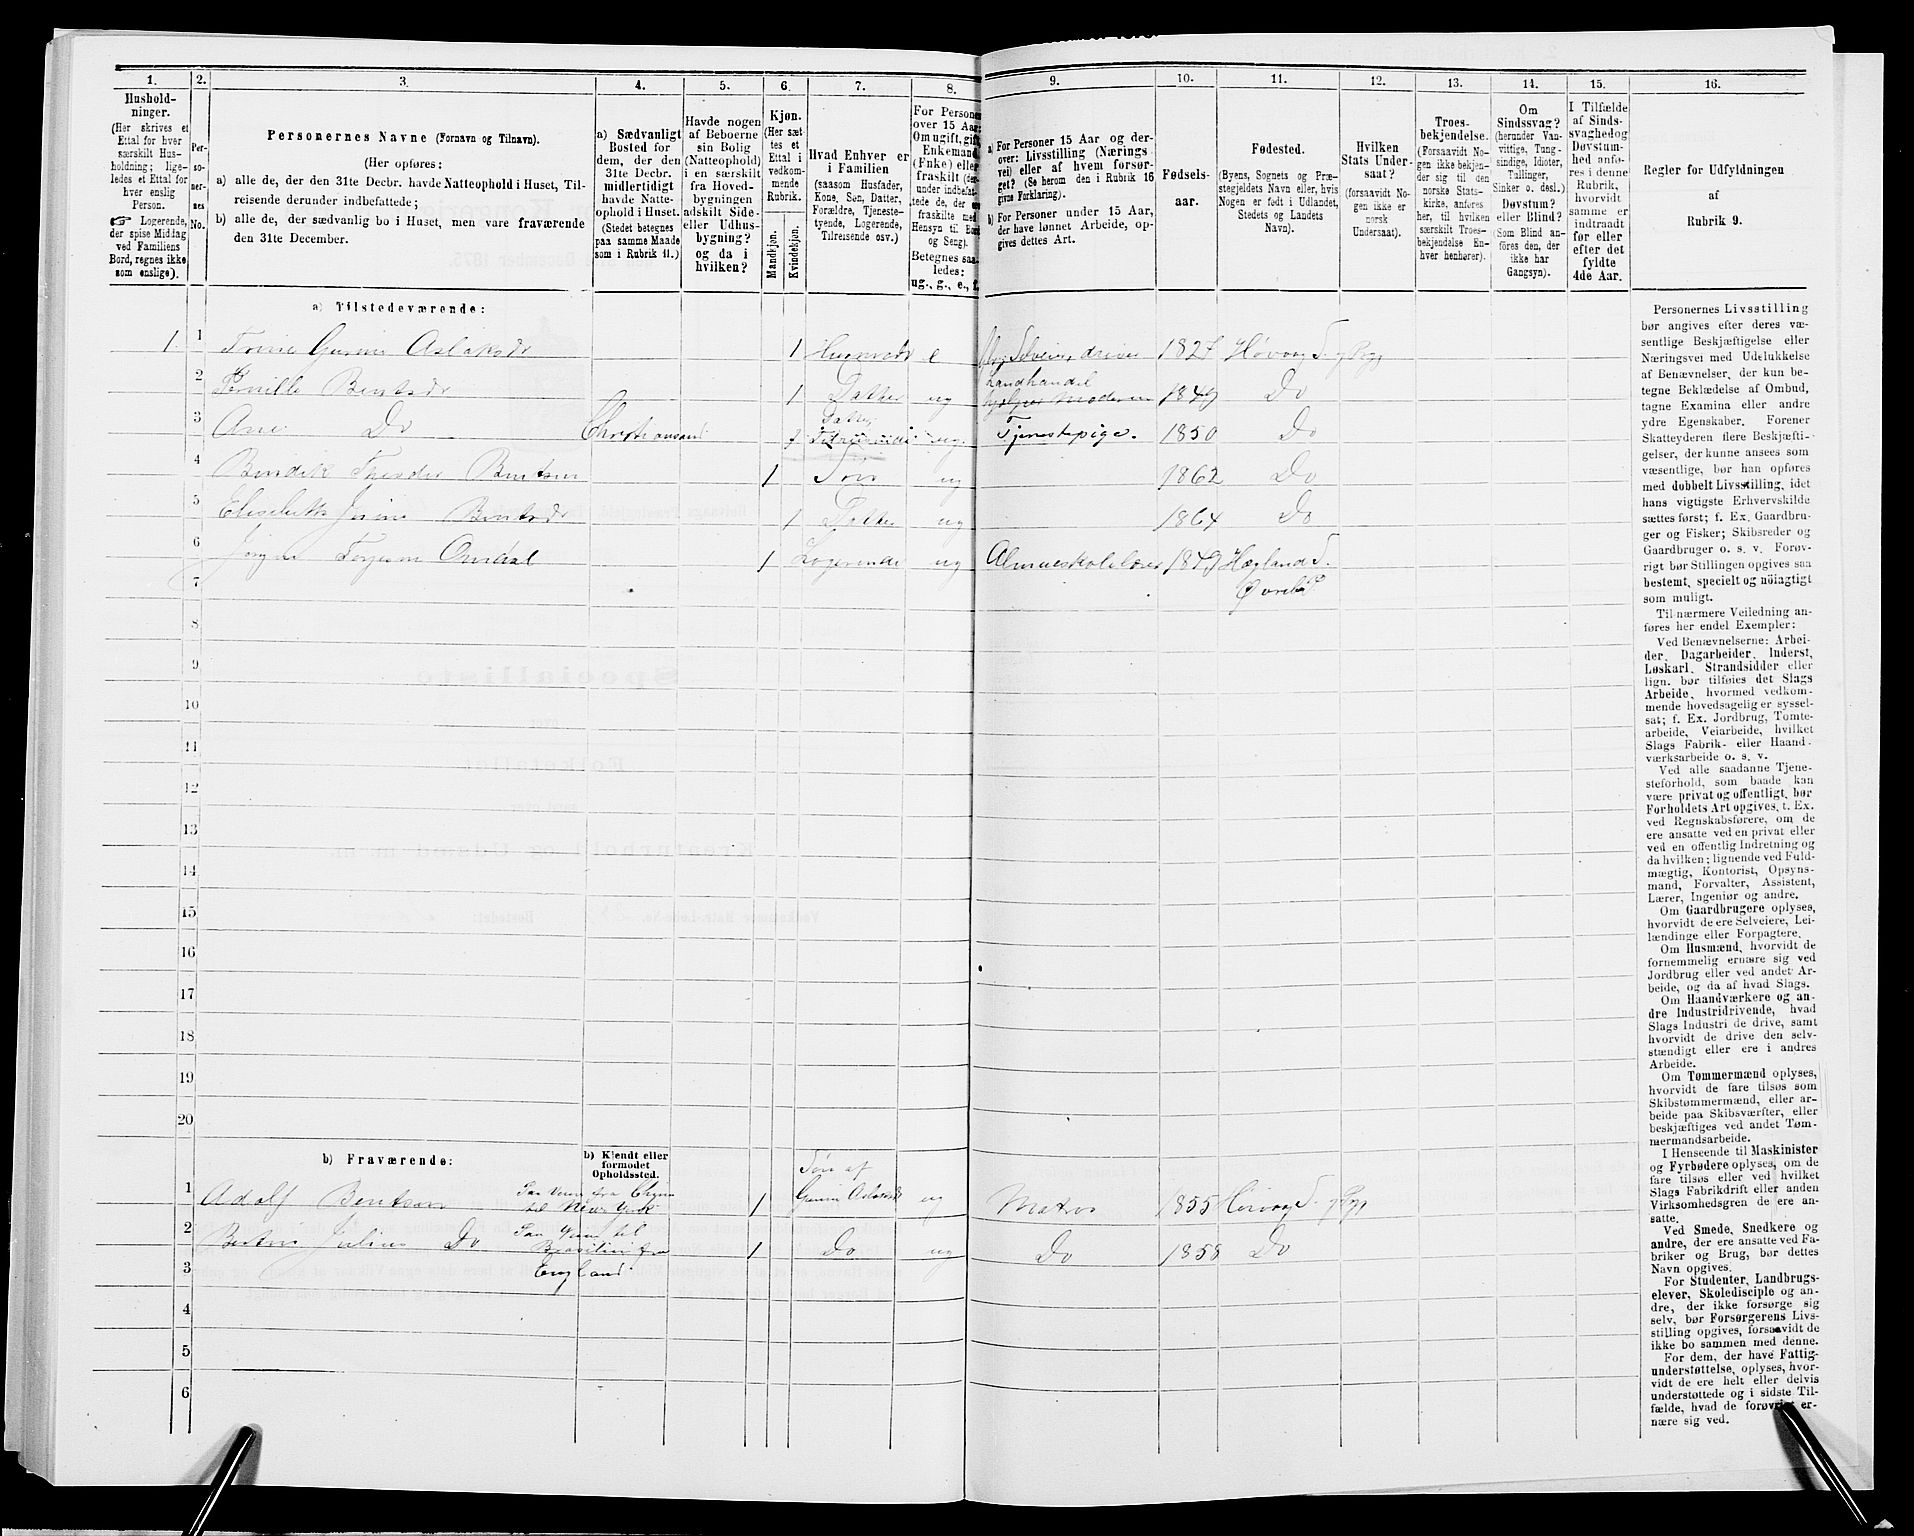 1.
Hushold-
ninger.
(Her skrives et
Ettal for hver
særskilt Hus-
holdning; lige-
ledes et Ettal for
hver enslig
Person.
☞ Logerende,
der spise Middag
ved Familiens
Bord, regnes ikke
som enslige).
2.
Per-
so-
ner-
nes
No.
3.
Personernes Navne (Fornavn og Tilnavn).
(Her opføres:
a) alle de, der den 31te Decbr. havde Natteophold i Huset, Til-
reisende derunder indbefattede;
b) alle de, der sædvanlig bo i Huset, men vare fraværende
den 31te December.
4.
a) Sædvanligt
Bosted for
dem, der den
31te Decbr.
midlertidigt
havde Natte-
ophold i Huset.
(Stedet betegnes
paa samme Maade
som i Rubrik 11.)
5.
Havde nogen
af Beboerne
sin Bolig
(Natteophold)
i en særskilt
fra Hoved-
bygningen
adskilt Side-
eller Udhus-
bygning?
og da i
hvilken?
6.
Kjøn.
(Her sæt-
tes et
Ettal i
vedkom-
mende
Rubrik.
Mandkjøn.
Kvindekjøn.
7.
Hvad Enhver er
i Familien
(saasom Husfader,
Kone, Søn, Datter,
Forældre, Tjeneste-
tyende, Logerende,
Tilreisende osv.)
8.
For Personer
over 15 Aar:
Om ugift, gift,
Enkemand
(Enke) eller
fraskilt (der-
under indbefat-
tede de, der ere
fraskilte med
Hensyn til Bord
og Seng).
Betegnes saa-
ledes:
ug., g., e., f.
9.
a) For Personer 15 Aar og der-
over: Livsstilling (Nærings-
vei) eller af hvem forsør-
get? (Se herom den i Rubrik 16
givne Forklaring).
b) For Personer under 15 Aar,
der have lønnet Arbeide, op-
gives dettes Art.
10.
Fødsels-
aar.
11.
Fødested.
(Byens, Sognets og Præ-
stegjeldets Navn eller, hvis
Nogen er født i Udlandet,
Stedets og Landets
Navn).
12.
Hvilken
Stats Under-
saat?
(forsaavidt No-
gen ikke er
norsk
Undersaat).
13.
Troes-
bekjendelse.
(Forsaavidt No-
gen ikke bekjen-
der sig til den
norske Stats-
kirke, anføres
her, til hvilken
særskilt Troes-
bekjendelse En-
hver henhører).
14.
Om
Sindssvag?
(herunder Van-
vittige, Tung-
sindige, Idioter,
Tullinger,
Sinker o. desl.)
Døvstum?
eller Blind?
(Som Blind an-
føres den, der
ikke har
Gangsyn).
15.
I Tilfælde
af Sinds-
svaghed og
Døvstum-
hed anfø-
res i denne
Rubrik,
hvorvidt
samme er
indtraadt
før eller
efter det
fyldte
4de Aar.
16.
Regler for Udfyldningen
af
Rubrik 9.
a) Tilstedeværende:
1 1 Trine Gurine Aslaksdr 1 e 1827 Høvaag S. og Pgj
2 Pernille Bentsdr 1 Datter ug Landhandel hjelper Moderen 1849 Do
3 Ane Do Christiansand Datter Tilreisende ug. Tjenestepige. 1850 Do
4 Bendik Theodor Bentsen 1 Søn ug 1862 Do
5 Elisabeth Josine Bentsdr 1 Datter ug 1864 Do
6 Torjesen Omdal 1 Logerende ug Almueskolelærer 1849 Hægland S.
7 Øvrebø P
8
9
10
11
12
13
14
15
16
17
18
19
20
b) Fraværende:
b) Kjendt eller
formodet
Opholdssted.
1 Adolf Bentsen til New York 1 Søn af Gurine Aslaksdr ug Matros 1855 Høvaag S. og Pgj
2 Julius Do til Brasilien fra 1 Do ug Do 1858 Do
3 England
4
5
6
Personernes Livsstilling
bør angives efter deres væ-
sentlige Beskjæftigelse eller
Næringsvei med Udelukkelse
af Benævnelser, der kun be-
tegne Beklædelse af Ombud,
tagne Examina eller andre
ydre Egenskaber. Forener
Skatteyderen flere Beskjæfti-
gelser, der kunne ansees som
væsentlige, bør han opføres
med dobbelt Livsstilling, idet
hans vigtigste Erhvervskilde
sættes først; f. Ex. Gaardbru-
ger og Fisker; Skibsreder og
Gaardbruger o. s. v. Forøv-
rigt bør Stillingen opgives saa
bestemt, specielt og nöiagtigt
som muligt.
Til nærmere Veiledning an-
føres her endel Exempler:
Ved Benævnelserne: Arbei-
der, Dagarbeider, Inderst,
Løskarl, Strandsidder eller
lign. bør tilføies det Slags
Arbeide, hvormed vedkom-
mende hovedsagelig er syssel-
sat; f. Ex. Jordbrug, Tomte-
arbeide, Veiarbeide, hvilket
Slags Fabrik- eller Haand-
værksarbeide o. s. v.
Ved alle saadanne Tjene-
steforhold, som baade kan
være privat og offentligt, bør
Forholdets Art opgives, t. Ex.
ved Regnskabsførere, om de
ere ansatte ved en privat eller
ved en offentlig Indretning og
da hvilken; lignende ved Fuld-
mægtig, Kontorist, Opsyns-
mand, Forvalter, Assistent,
Lærer, Ingeniør og andre.
Om Gaardbrugere oplyses,
hvorvidt de ere Selveiere, Lei-
lændinge eller Forpagtere.
Om Husmænd, hvorvidt de
fornemmelig ernære sig ved
Jordbrug eller ved andet Ar-
beide, og da af hvad Slags.
Om Haandværkere og an-
dre Industridrivende, hvad
Slags Industri de drive, samt
hvorvidt de drive den selv-
stændigt eller ere i andres
Arbeide.
Om Tømmermænd oplyses,
hvorvidt de fare tilsøs som
Skibstømmermænd, eller ar-
beide paa Skibsværfter, eller
beskjæftiges ved andet Tøm-
mermandsarbeide.
I Henseende til Maskinister
og Fyrbødere oplyses, om de
fare tilsøs eller ved hvilket
Slags Fabrikdrift eller anden
Virksomhedsgren de ere an-
satte.
Ved Smede, Snedkere og
andre, der ere ansatte ved Fa-
briker og Brug, bør dettes
Navn opgives.
For Studenter, Landbrugs-
elever, Skoledisciple og an-
dre, der ikke forsørge sig
selv, bør Forsørgerens Livs-
stilling opgives, forsaavidt de
ikke bo sammen med denne.
For dem, der have Fattig-
understøttelse, oplyses, hvor-
vidt de ere helt eller delvis
understøttede og i sidste Til-
fælde, hvad de forøvrigt er-
nære sig ved.